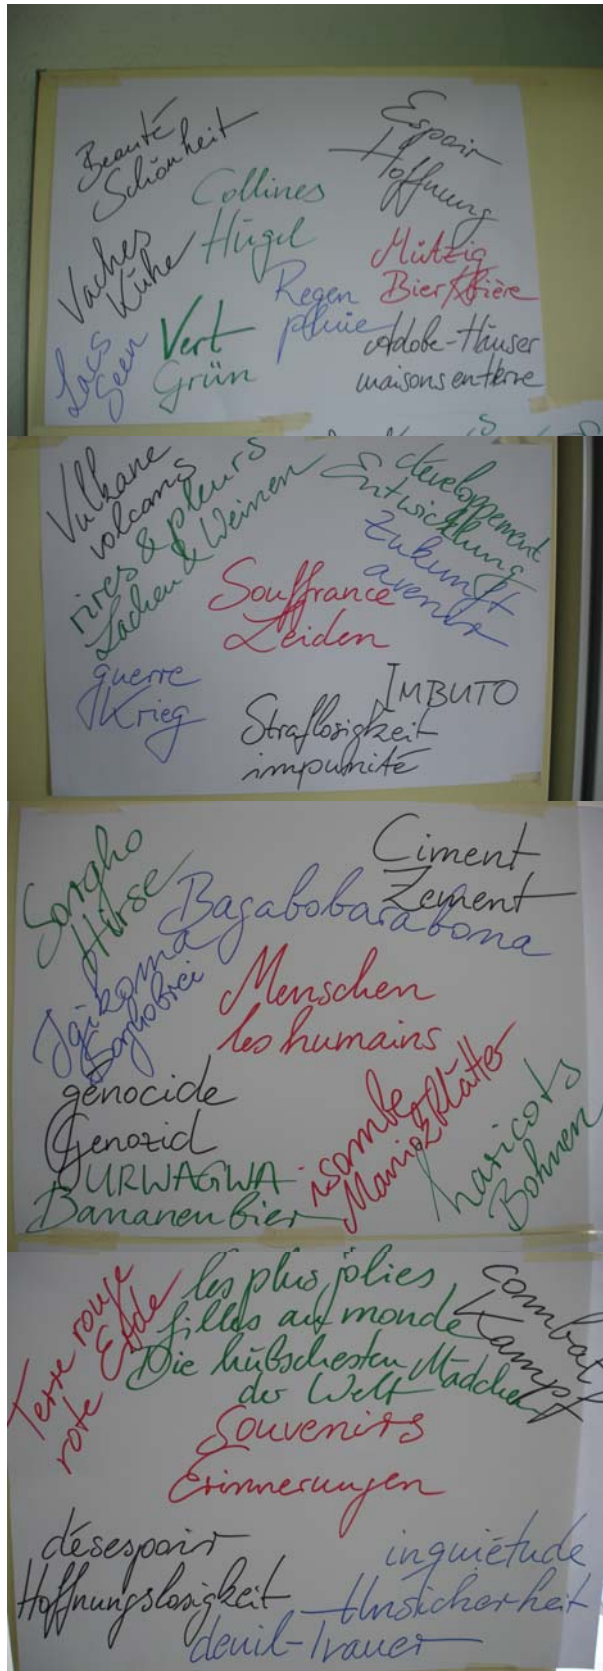 Beauté
Schönheit
Espoir
Hoffnung
Collines
Hügel
Vaches
Kühe
Mützig
Bier/Bière
Regen
pluie
Lacs
Seen
Vert
Grün
Adobe-Häuser
maisons en terre
Vulkane
volcans
rires & pleurs
Lachen & Weinen
développement
Entwicklung
Zukunft
avenir
Souffrance
Leiden
guerre
Krieg
IMBUTO
Straflosigkeit
impunité
Sorgho
Hirse
Ciment
Zement
Bagabobarabona
Igikoma
Sorghobrei
Menschen
les humains
génocide
Genozid
URWAGWA
Bananenbier
isombe
Maniokblätter
haricots
Bohnen
Terre rouge
rote Erde
les plus jolies
filles au monde
Die hübschesten Mädchen
der Welt
combat
Kampf
Souvenirs
Erinnerungen
désespoir
Hoffnungslosigkeit
inquiétude
Unsicherheit
deuil-Trauer